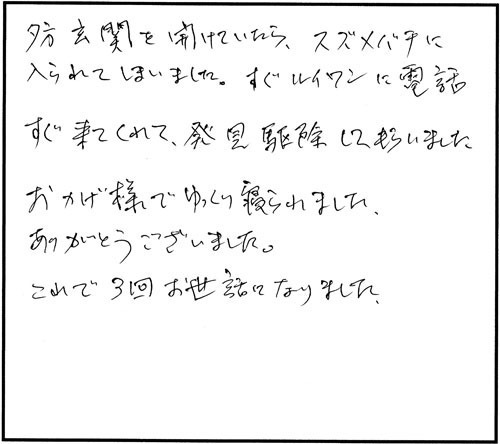 夕方玄関を開けていたら、スズメバチに
入られてしまいました。すぐルイワンに電話
すぐ来てくれて、発見駆除してもらいました
おかげ様でゆっくり寝られました、
ありがとうございました。
これで3回お世話になりました、